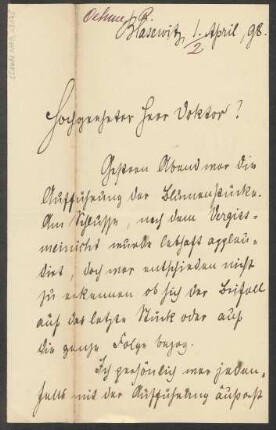 Oehme, R.
Blasewitz, 1/2 April, 98.
Hochgeehrter Herr Doktor!
Gestern Abend war die
Aufführung der Blumenstücke.
Am Schlusse, nach dem Vergiss-
meinicht wurde lebhaft applau-
diert, doch war entschieden nicht
zu erkennen ob sich der Beifall
auf das letzte Stück oder auf
die ganze Folge bezog.
Ich persönlich war jeden-
falls mit der Aufführung äußerst